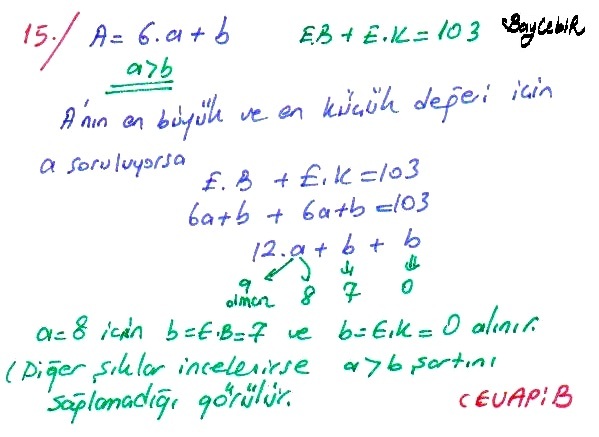 15./ A = 6.a + b E.B + E.K = 103 BayCebiR
a>b
A'nın en büyük ve en küçük değeri için
a soruluyorsa
E.B + E.K = 103
6a+b + 6a+b = 103
12.a + b + b
9 8 7 0
olmaz
a=8 için b=E.B=7 ve b=E.K=0 alınır.
(Diğer şıklar incelenirse a>b şartını
sağlamadığı görülür.
CEVAP: B